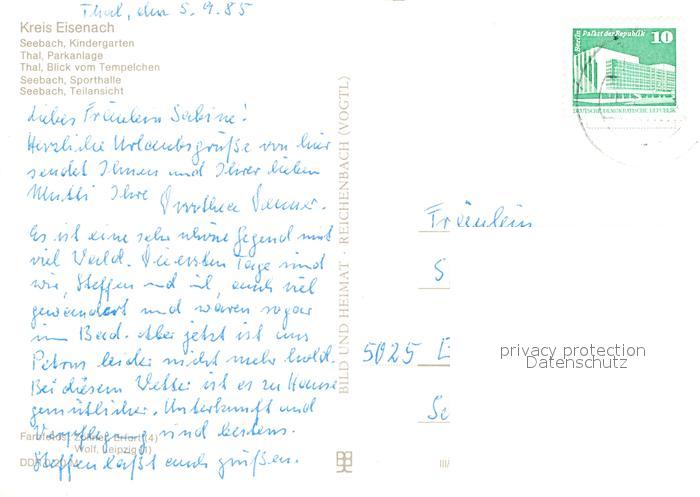 Thal, den 5.9.85
Kreis Eisenach
Seebach, Kindergarten
Thal, Parkanlage
Thal, Blick vom Tempelchen
Seebach, Sporthalle
Seebach, Teilansicht
Liebes Fräulein Sabine!
Herzliche Urlaubsgrüße von hier
sendet Ihnen und Ihrer lieben
Mutti Ihre
Dorothea
Es ist eine sehr schöne Gegend mit
viel Wald. Die ersten Tage sind
wir, Steffen und ich, auch viel
gewandert und waren sogar
im Bad. Aber jetzt ist uns
Petrus leider nicht mehr hold.
Bei diesem Wetter ist es zu Hause
gemütlicher. Unterkunft und
Verpflegung sind bestens.
Steffen läßt auch grüßen.
Farbfotos: Zöllner, Erfurt (4)
Wolf, Leipzig (1)
BILD UND HEIMAT · REICHENBACH (VOGTL)
Berlin Palast der Republik 10
DEUTSCHE DEMOKRATISCHE REPUBLIK
Fräulein
S
5025 E
privacy protection
Datenschutz
III/